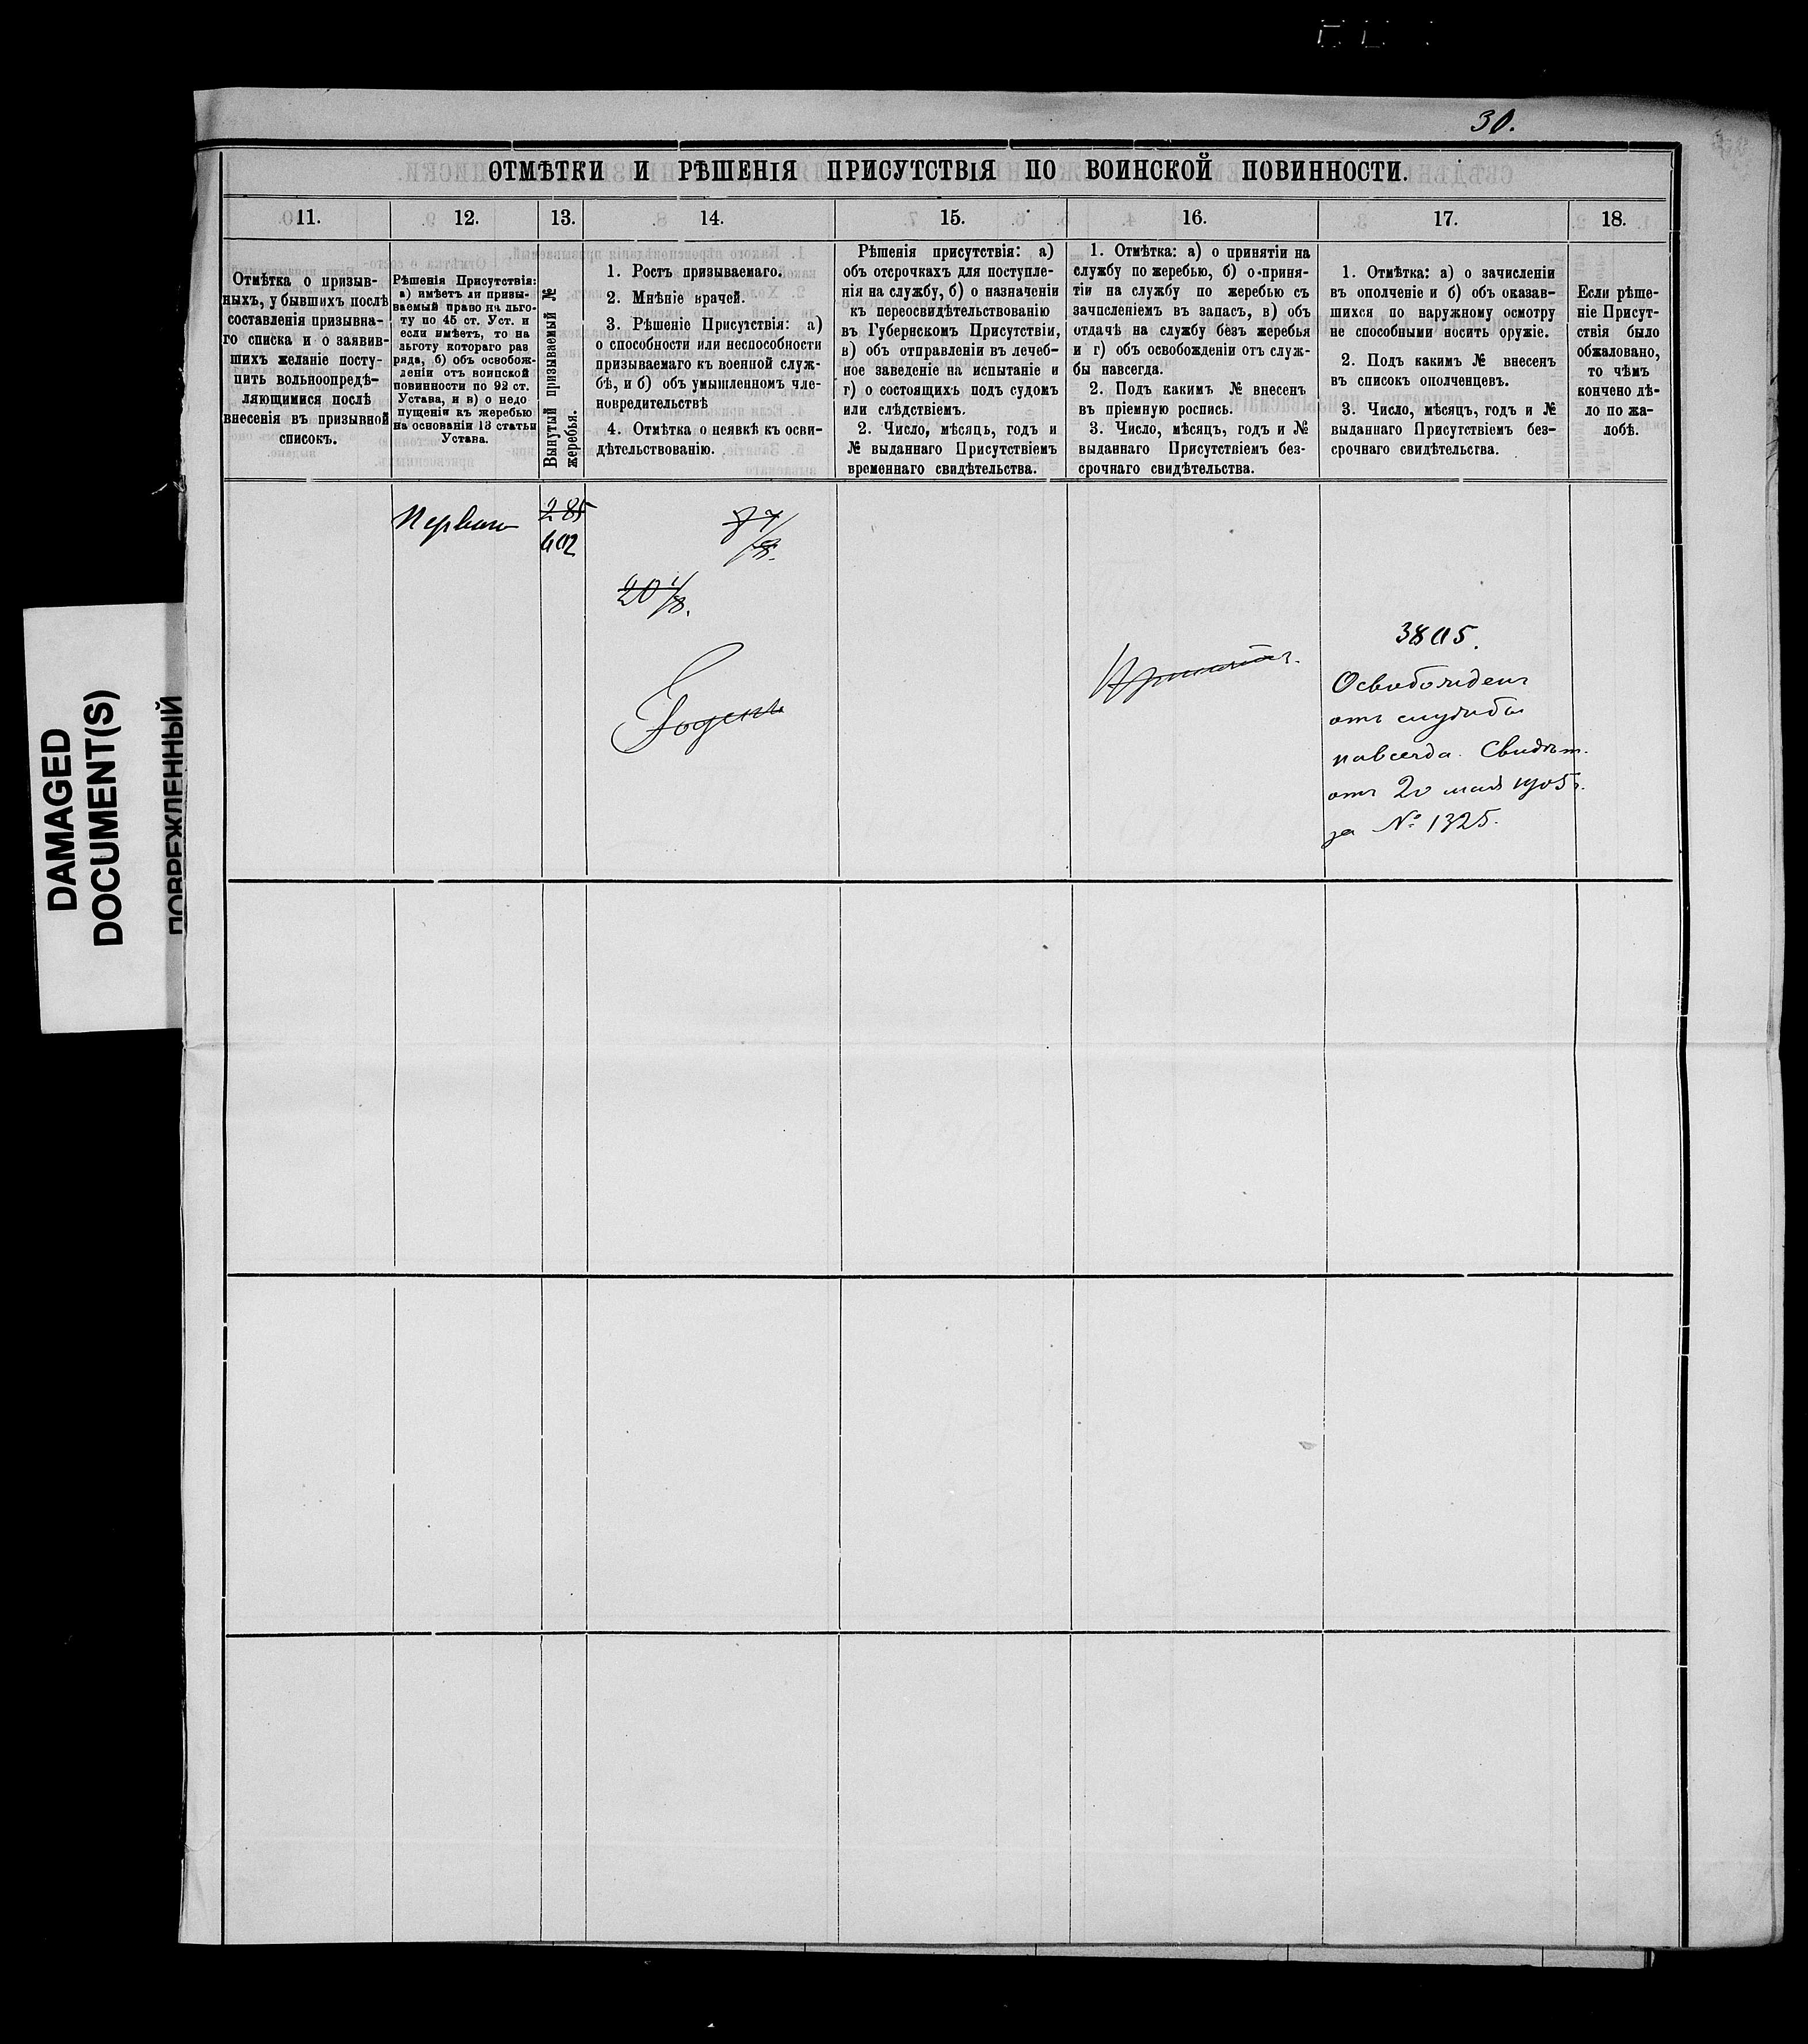 30.
ОТМѢТКИ И РѢШЕНІЯ ПРИСУТСТВІЯ ПО ВОИНСКОЙ ПОВИННОСТИ.
11.
12.
13.
14.
15.
16.
17.
18.
Отмѣтка о призыв-
ныхъ, у бывшихъ послѣ
составленія призывна-
го списка и о заявив-
шихъ желаніе посту-
пить вольноопредѣ-
ляющимися послѣ
внесенія въ призывной
списокъ.
Рѣшенія Присутствія:
а) имѣетъ ли призы-
ваемый право на льго-
ту по 45 ст. Уст. и
если имѣетъ, то на
льготу котораго раз
ряда, б) объ освобож-
деніи отъ воинской
повинности по 92 ст.
Устава, и в) о недо
пущеніи къ жеребью
на основаніи 13 статьи
Устава.
Вынутый призываемый №
жеребья.
1. Ростъ призываемаго.
2. Мнѣніе врачей.
3. Рѣшеніе Присутствія: а)
о способности или неспособности
призываемаго къ военной служ-
бѣ, и б) объ умышленномъ чле-
новредительствѣ
4. Отмѣтка о неявкѣ къ осви-
дѣтельствованію.
Рѣшенія присутствія: а)
объ отсрочкахъ для поступле-
нія на службу, б) о назначеніи
къ переосвидѣтельствованію
въ Губернскомъ Присутствіи,
в) объ отправленіи въ лечеб-
ное заведеніе на испытаніе и
г) о состоящихъ подъ судомъ
или слѣдствіемъ.
2. Число, мѣсяць, годъ и
№ выданнаго Присутствіемъ
временнаго свидѣтельства.
1. Отмѣтка: а) о принятіи на
службу по жеребью, б) о приня-
тіи на службу по жеребью съ
зачисленіемъ въ запасъ, в) объ
отдачѣ на службу безъ жеребья
и г) объ освобожденіи отъ служ-
бы навсегда.
2. Подъ какимъ № внесенъ
въ пріемную роспись.
3. Число, мѣсяцъ, годъ и №
выданнаго Присутствіемъ без-
срочнаго свидѣтельства.
1. Отмѣтка: а) о зачисленіи
въ ополченіе и б) объ оказав-
шихся по наружному осмотру
не способными носить оружіе.
2. Подъ какимъ № внесенъ
въ списокъ ополченцевъ.
3. Число, мѣсяцъ, годъ и №
выданнаго Присутствіемъ без-
срочнаго свидѣтельства.
Если рѣше-
ніе Присут-
ствія было
обжаловано,
то чѣмъ
кончено дѣ-
ло по жа-
лобѣ.
285
402
20 1/8.
Годенъ
Принятъ.
3805.
Освобожденъ
отъ службы
навсегда. Свидѣт.
отъ 20 мая 1905 г.
за № 1325.
DAMAGED
DOCUMENT(S)
ПОВРЕЖДЕННЫЙ